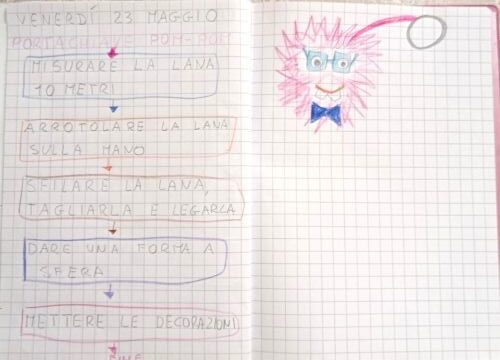 VENERDÍ 23 MAGGIO
PORTACHIAVE POM-POM
MISURARE LA LANA
10 METRI
ARROTOLARE LA LANA
SULLA MANO
SFILARE LA LANA,
TAGLIARLA E LEGARLA
DARE UNA FORMA A
SFERA
METTERE LE DECORAZIONI
FINE